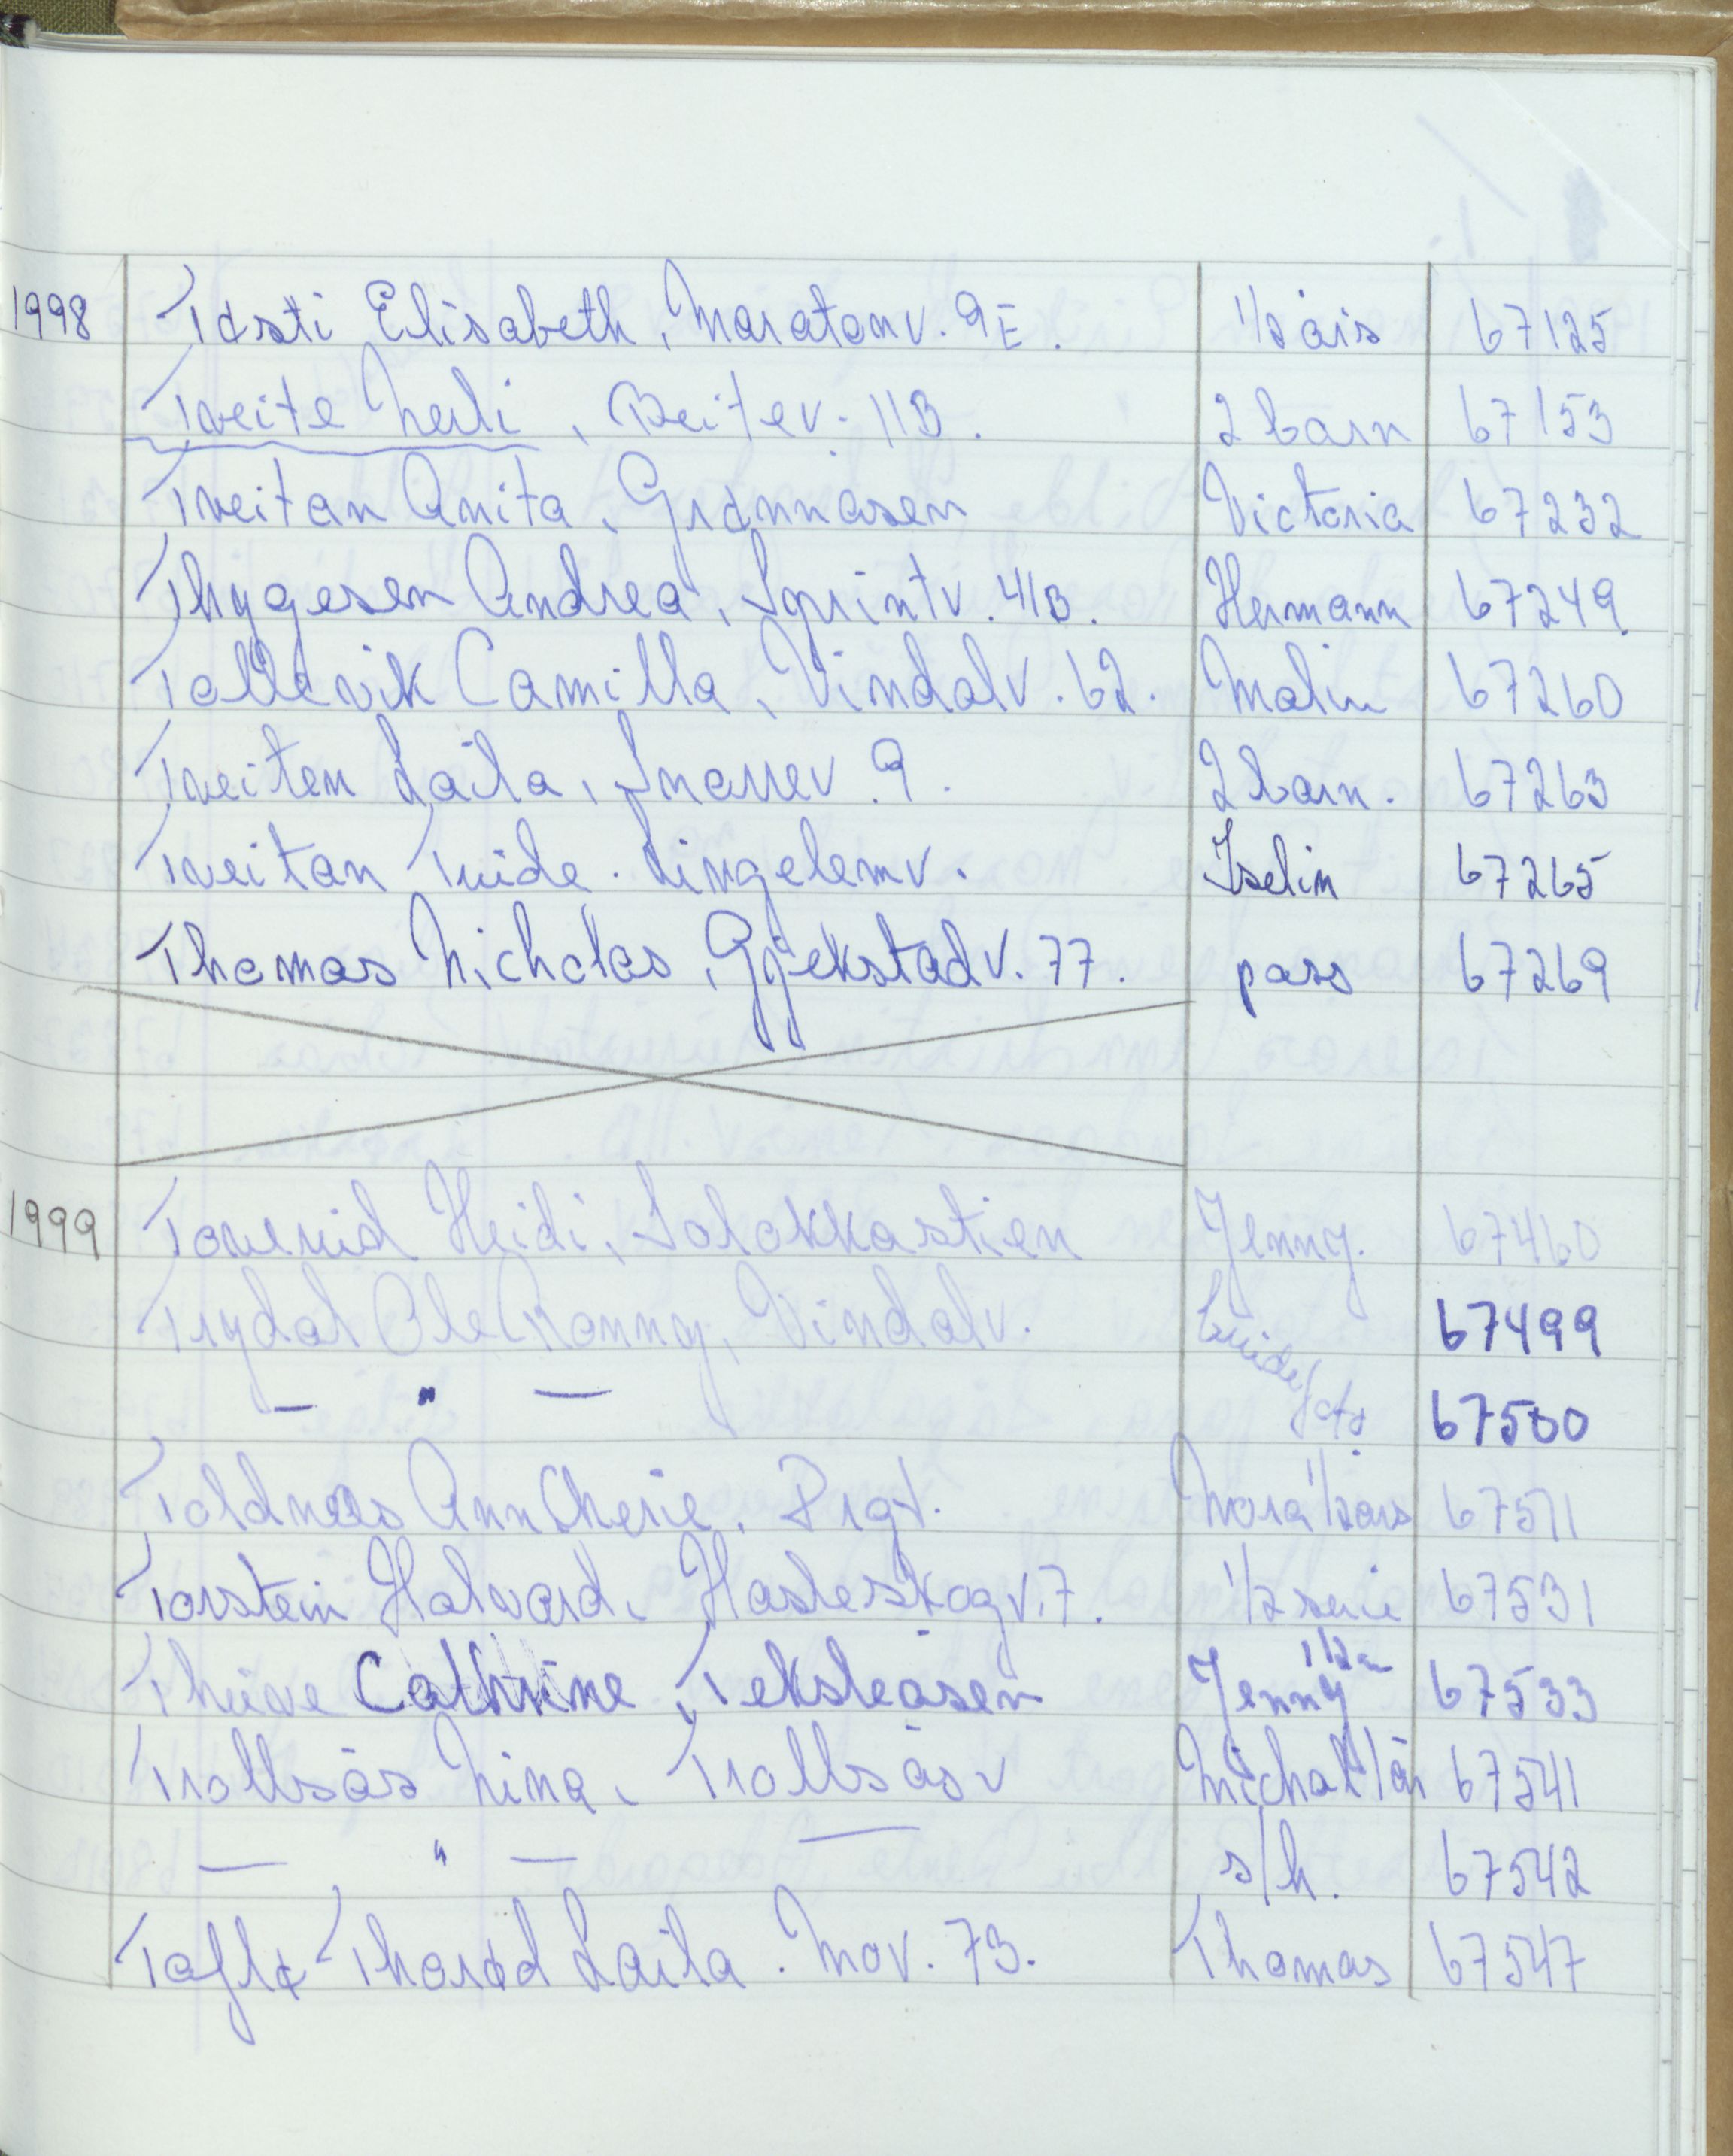 1998 Tøsti Elisabeth, Maratonv. 9E. 1/2 åis 67125
Tveite Heili, Beitev. 11B. 2 barn 67153
Tveitan Anita, Grønnåsen Victoria 67232
Thygesen Andrea, Sprintv. 41B. Hermann 67249
Tollevik Camilla, Vindalv. 62. Malin 67260
Tveiten Laila, Snarrev. 9. 2 barn. 67263
Tveitan Turide. Lingelemv. Iselin 67265
Thomas Nicholas, Gjekstadv. 77. pass 67269
1999 Toverud Heidi, Solokkastien Jenny. 67460
Trydal Ole Ronny, Vindalv. 67499
— " — 67500
Toldnes Ann Cherie. Prgt. Mora 1/2 års 67511
Torstein Halvard, Hasleskogv. 7. 1/2 serie 67531
Theive Cathrine, Teksleåsen Jenny 1/2 67533
Trollsås Nina, Trollsåsv Michal 1 år 67541
— " — — s/h. 67542
Taflø Thorød Laila. Mov. 73. Thomas 67547